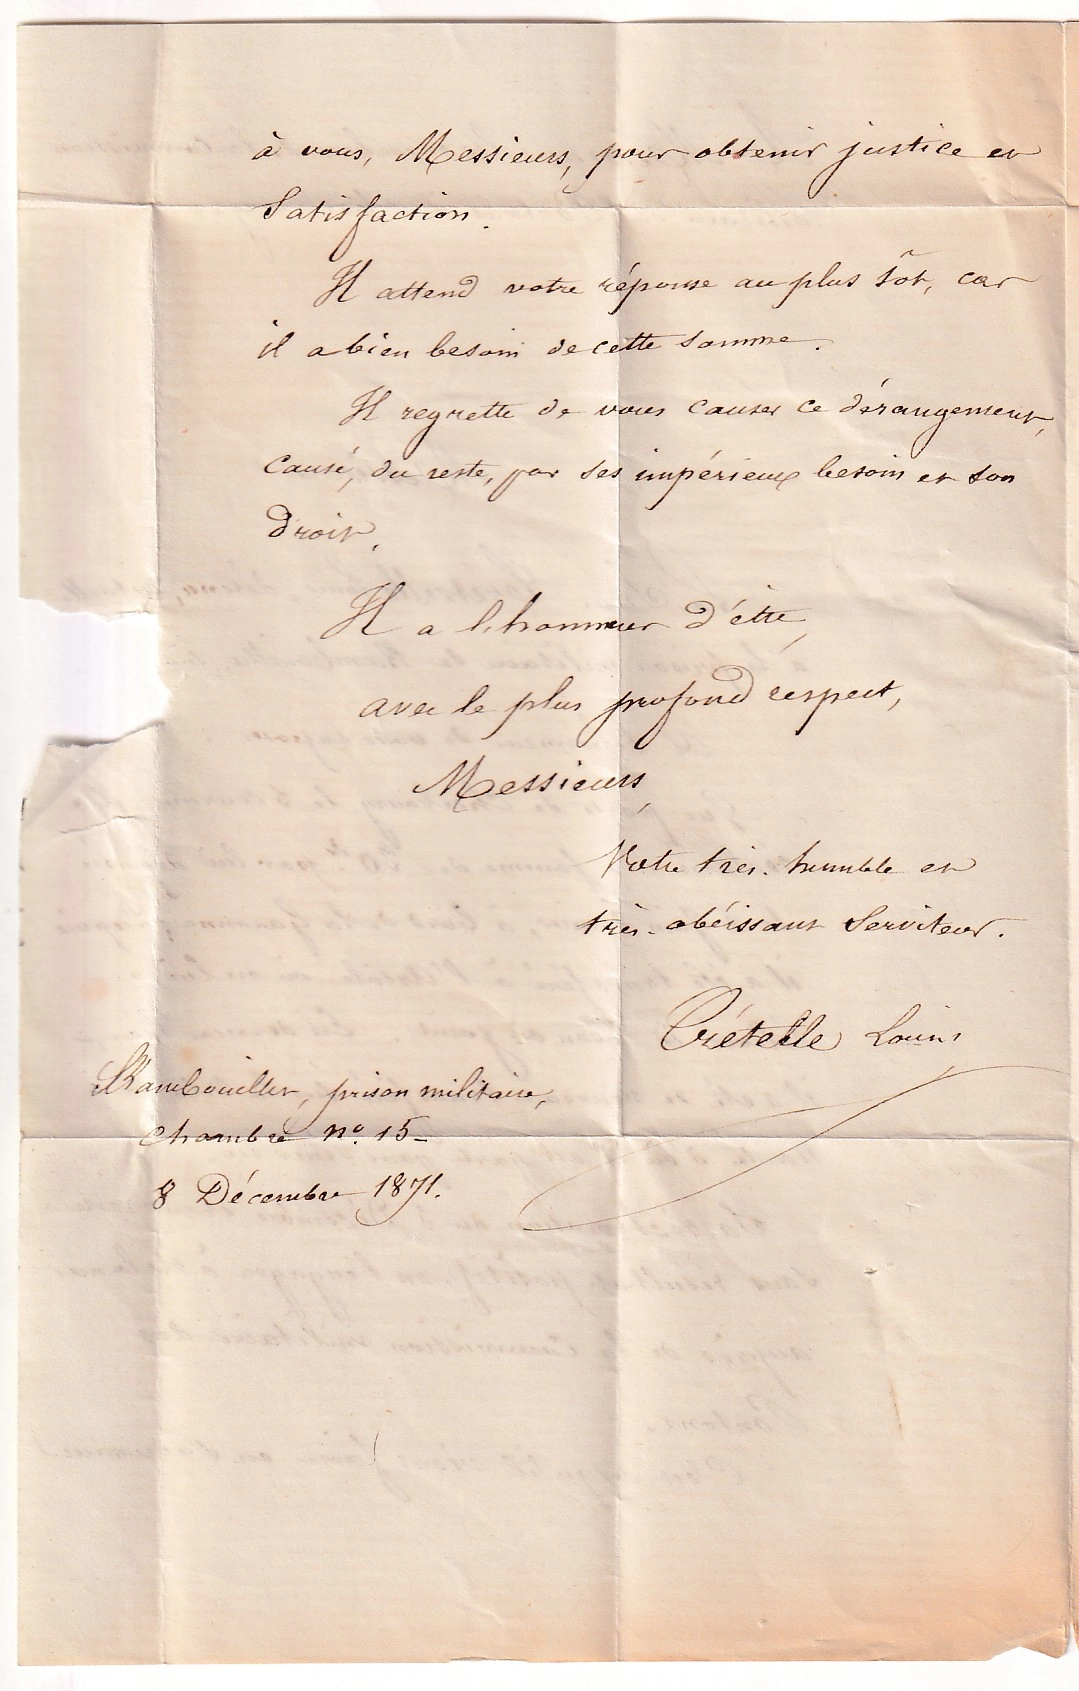 à vous, Messieurs, pour obtenir justice et
Satisfaction.
Il attend votre réponse au plus tôt, car
il a bien besoin de cette somme.
Il regrette de vous causer ce dérangement,
causé, du reste, par ses impérieux besoin et son
droit.
Il a l'honneur d'être,
avec le plus profond respect,
Messieurs,
Votre très-humble et
très-obéissant Serviteur.
Crételle Louis
Rambouillet, prison militaire,
Chambre nº 15-
8 Décembre 1871.